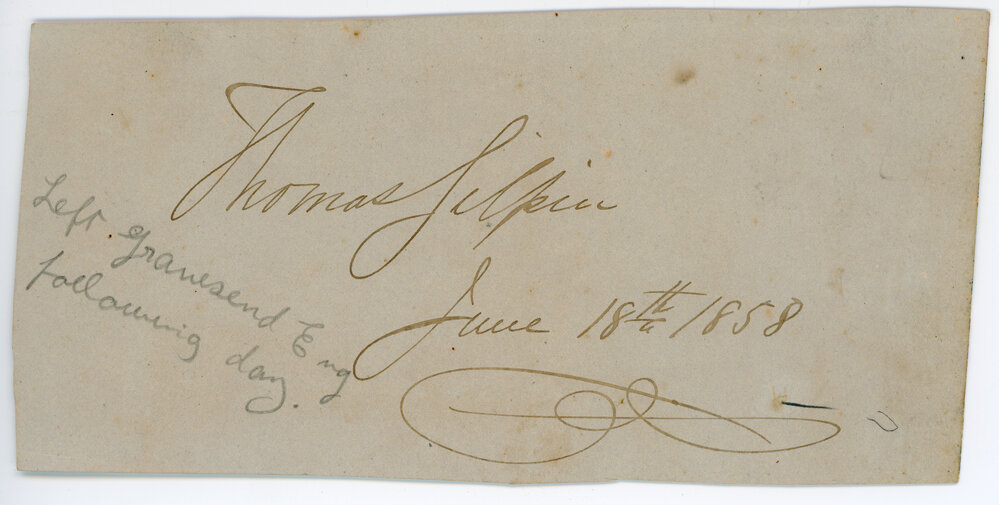 Thomas Gilpin
June 18th 1858
Left Gravesend Eng
following day.